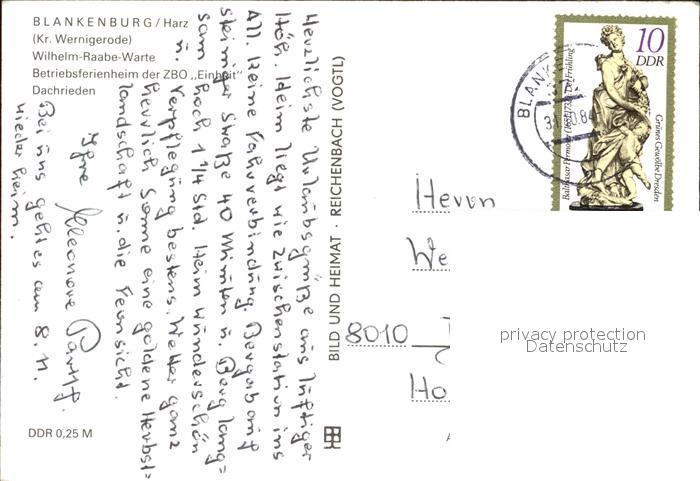 BLANKENBURG / Harz
(Kr. Wernigerode)
Wilhelm-Raabe-Warte
Betriebsferienheim der ZBO „Einheit"
Dachrieden
Herzlichste Urlaubsgrüße aus luftiger
Höh. Heim liegt wie Zwischenstation ins
All. Keine Fahrverbindung. Bergab auf
steiniger Straße 40 Minuten u. Berg lang=
sam hoch 1 1/4 Std. Heim wunderschön
u. Verpflegung bestens. Wetter ganz
herrlich Sonne eine goldene Herbst=
landschaft u. die Fernsicht.
Ihre Eleonore
Bei uns geht es am 8. 11.
wieder heim.
DDR 0,25 M
BILD UND HEIMAT · REICHENBACH (VOGTL)
10
DDR
Balthasar Permoser (1651-1732) Der Frühling
Grünes Gewölbe Dresden
BLANK
Herrn
We
8010
Ho
privacy protection
Datenschutz